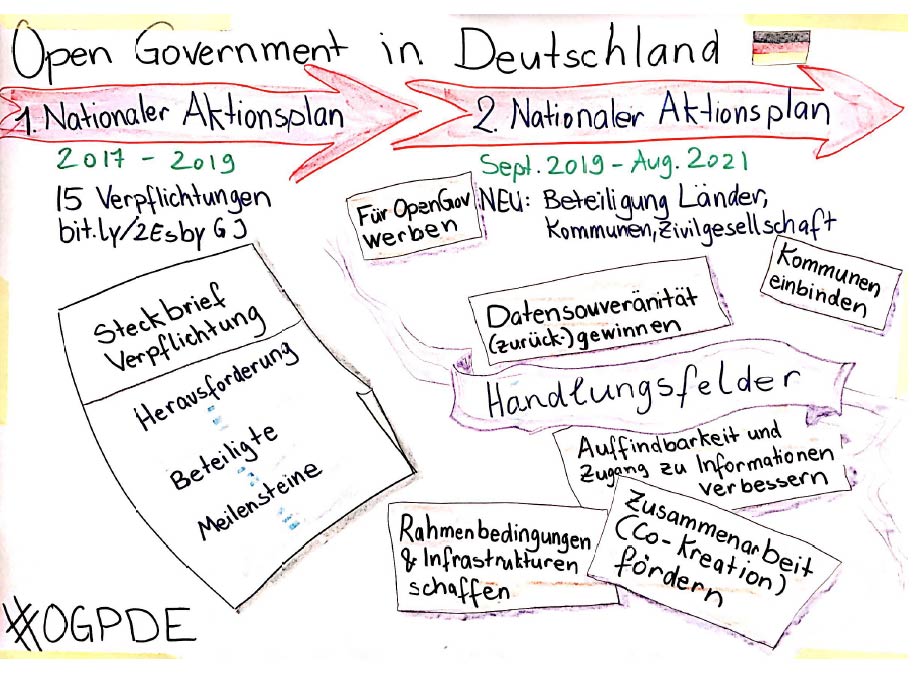 Open Government in Deutschland
1. Nationaler Aktionsplan
2017 - 2019
15 Verpflichtungen
bit.ly/2EsbyGJ
2. Nationaler Aktionsplan
Sept. 2019 - Aug. 2021
NEU: Beteiligung Länder,
Kommunen, Zivilgesellschaft
Für OpenGov
werben
Kommunen
einbinden
Steckbrief
Verpflichtung
Herausforderung
Beteiligte
Meilensteine
Datensouveränität
(zurück-) gewinnen
Handlungsfelder
Auffindbarkeit und
Zugang zu Informationen
verbessern
Rahmenbedingungen
& Infrastrukturen
schaffen
Zusammenarbeit
(Co-Kreation)
fördern
#OGPDE